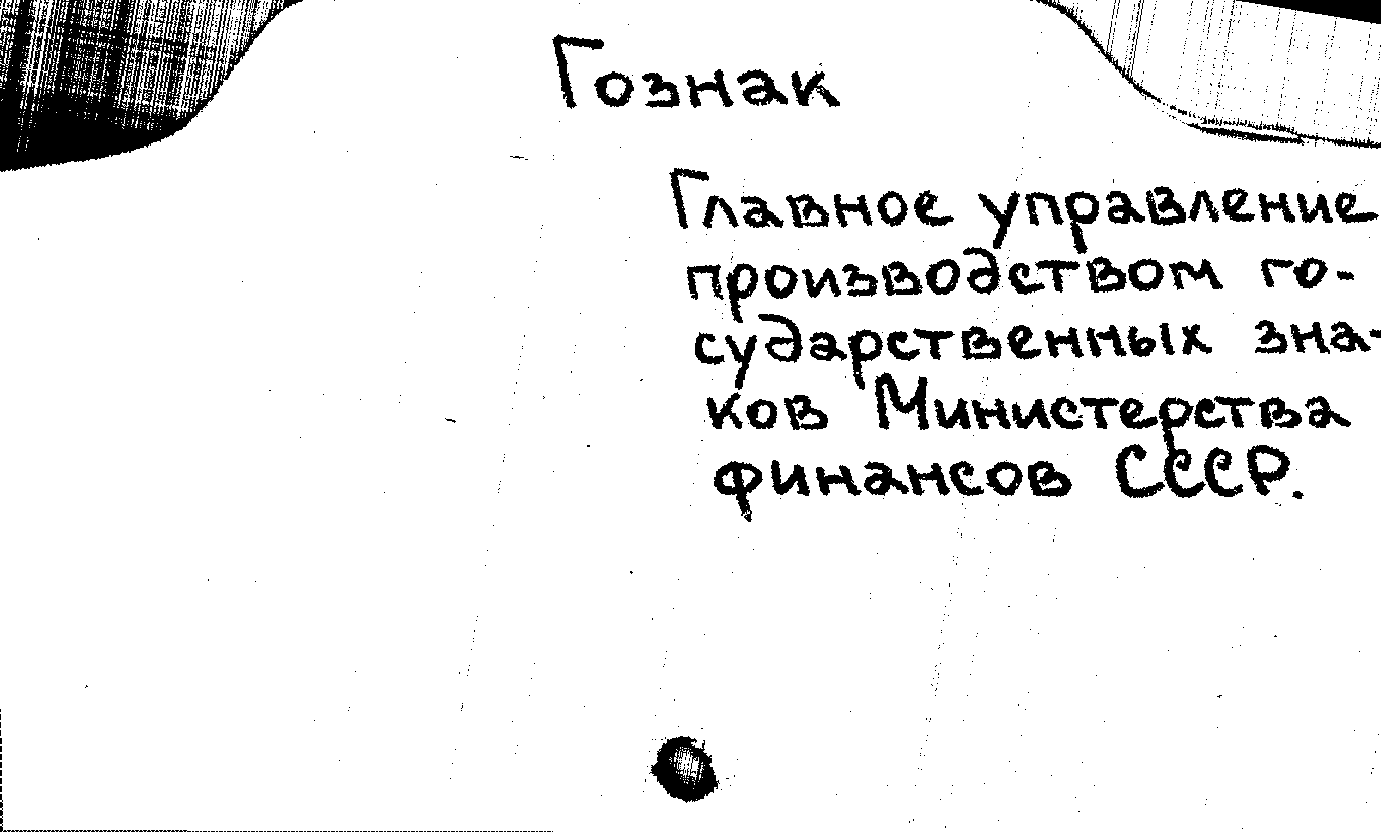 Гознак
Главное управление
производством го-
сударственных зна-
ков Министерства
финансов СССР.